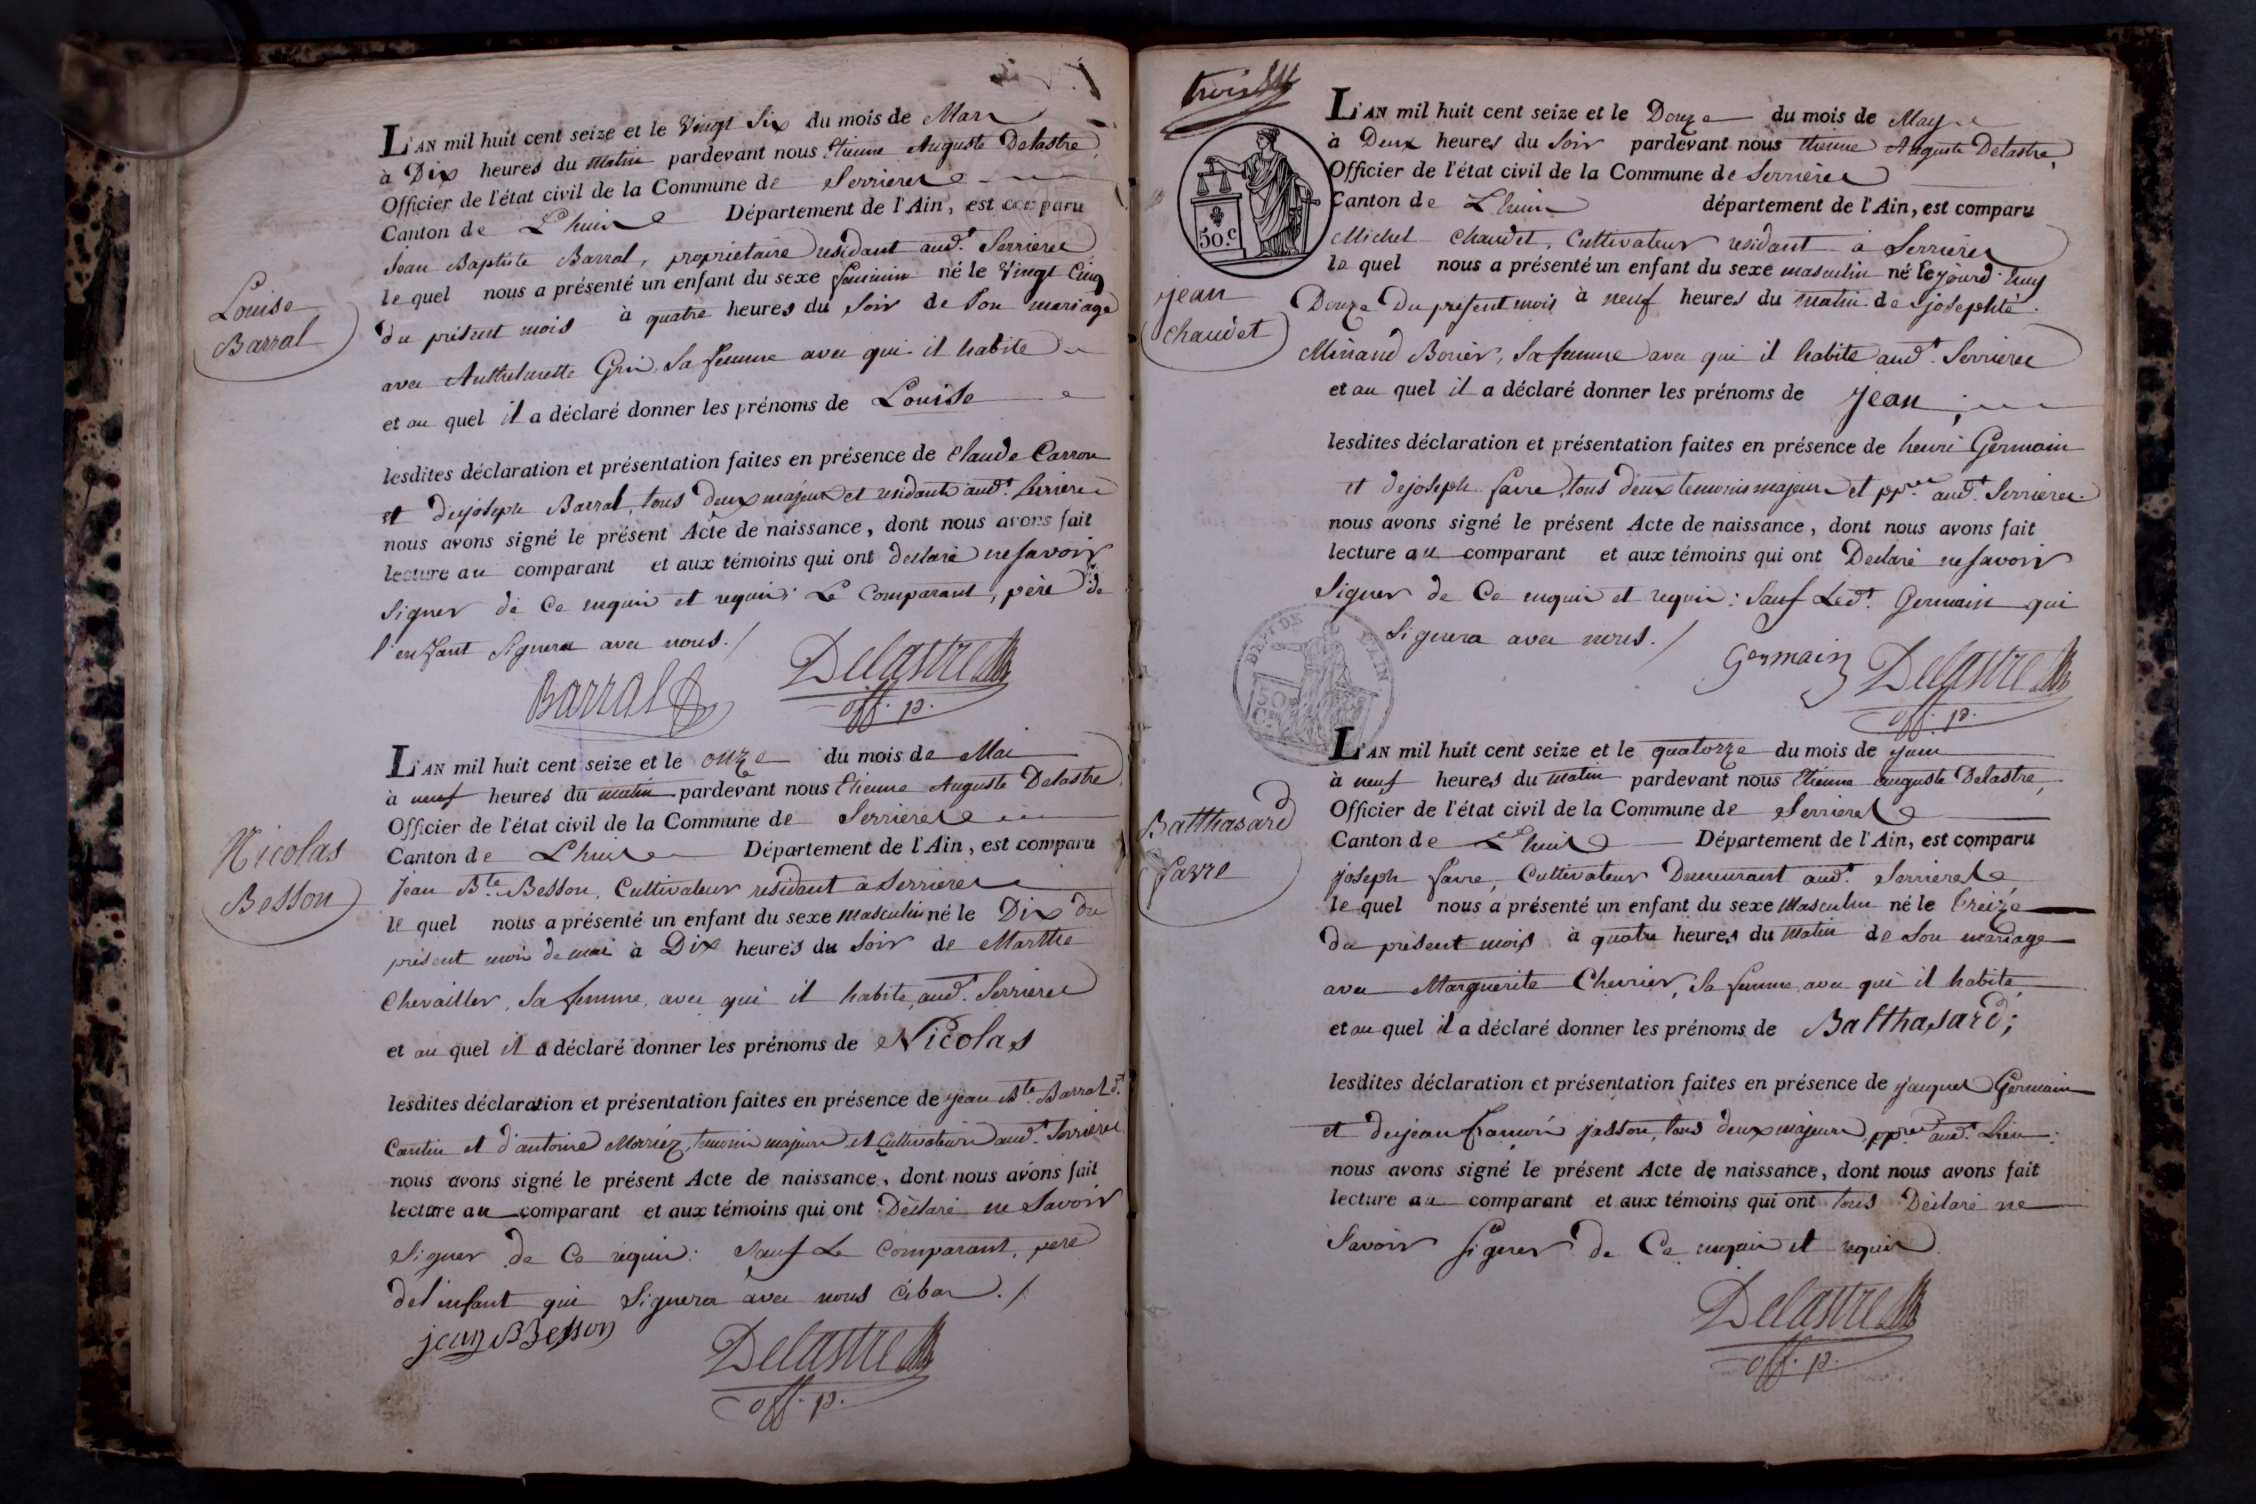 L'AN mil huit cent seize et le Vingt Six du mois de Mars
à Dix heures du matin pardevant nous Etienne Auguste Delastre,
Officier de l'état civil de la Commune de Serrieres
Canton de L'huis Département de l'Ain, est comparu
Jean Baptiste Barral, propriétaire residant aud.t Serrieres
le quel nous a présenté un enfant du sexe feminin né le Vingt Cinq
du présent mois à quatre heures du Soir de Son mariage
avec Anthelmette Grin, Sa femme avec qui il habite
et au quel il a déclaré donner les prénoms de Louise
lesdites déclaration et présentation faites en présence de Claude Carron
et dejoseph Barral, tous deux majeurs et residants aud.t Serrieres
nous avons signé le présent Acte de naissance, dont nous avons fait
lecture au comparant et aux témoins qui ont declaré ne Savoir
Signer de Ce enquis et requis; Le Comparant, père de
l'enfant Signera avec nous. /
Barral Delastre
off. p.
Louise
Barral
L'AN mil huit cent seize et le onze du mois de Mai
à neuf heures du matin pardevant nous Etienne Auguste Delastre
Officier de l'état civil de la Commune de Serrieres
Canton de L'huis Département de l'Ain, est comparu
Jean B.te Besson, Cultivateur residant à Serrieres
le quel nous a présenté un enfant du sexe masculin né le Dix du
présent mois de mai à Dix heures du Soir de Marthe
Chevailler, Sa femme, avec qui il habite, aud.t Serrieres
et au quel il a déclaré donner les prénoms de Nicolas
lesdites déclaration et présentation faites en présence de jean B.te Barral d.t
Cantin et d'antoine temoins majeurs et Cultivateurs aud.t Serrieres
nous avons signé le présent Acte de naissance, dont nous avons fait
lecture au comparant et aux témoins qui ont Déclaré ne Savoir
Signer de Ce requis: Sauf Le Comparant, père
del'enfant qui Signera avec nous Cibas. /
jean B Besson Delastre
off. p.
Nicolas
Besson
trois
50.c
L'AN mil huit cent seize et le Douze du mois de May
à Deux heures du Soir pardevant nous Etienne Auguste Delastre,
Officier de l'état civil de la Commune de Serrieres
Canton de L'huis département de l'Ain, est comparu
Michel Chaudet, Cultivateur residant à Serrieres
le quel nous a présenté un enfant du sexe masculin né lejourd'huy
Douze Du present mois à neuf heures du matin de josephte
Minand Bonier, Sa femme avec qui il habite aud.t Serrieres
et au quel il a déclaré donner les prénoms de jean;
lesdites déclaration et présentation faites en présence de henri Germain
et dejoseph favre, tous deux temoins majeurs et pp.res aud.t Serrieres.
nous avons signé le présent Acte de naissance, dont nous avons fait
lecture au comparant et aux témoins qui ont Declaré ne Savoir
Signer de Ce enquis et requis: Sauf Led.t Germain qui
Signera avec nous. /
Germain Delastre
off. p.
jean
Chaudet
DEPT DE L'AIN
50
Cs
L'AN mil huit cent seize et le quatorze du mois de juin
à neuf heures du matin pardevant nous Etienne auguste Delastre,
Officier de l'état civil de la Commune de Serrieres
Canton de L'huis Département de l'Ain, est comparu
joseph favre, Cultivateur Demeurant aud.t Serrieres
le quel nous a présenté un enfant du sexe Masculin né le treize
du présent mois à quatre heures du Matin de Son mariage
avec Marguerite Chevrier, Sa femme avec qui il habite,
et au quel il a déclaré donner les prénoms de Balthasard;
lesdites déclaration et présentation faites en présence de jacques Germain
et dejean françois jasson, tous deux majeurs, pp.res aud.t Lieu:
nous avons signé le présent Acte de naissance, dont nous avons fait
lecture au comparant et aux témoins qui ont tous Déclaré ne
Savoir Signer de Ce enquis et requis
Delastre
off. p.
Balthasard
favre